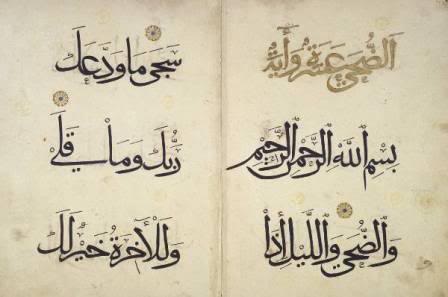 الضُّحى عَشَرة وَأيَة
بِسْمِ اللَّهِ الرَّحْمَنِ الرَّحِيمِ
وَالضُّحَى وَاللَّيْلِ إِذَا
سَجَى مَا وَدَّعَكَ
رَبُّكَ وَمَا قَلَى
وَلَلْآخِرَةُ خَيْرٌ لَكَ